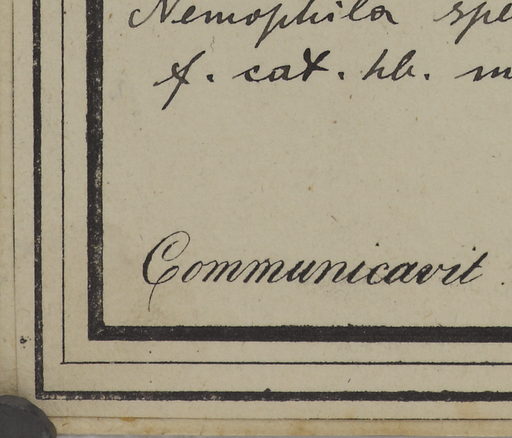 Nemophila spe
f. cat. hb. m
Communicavit